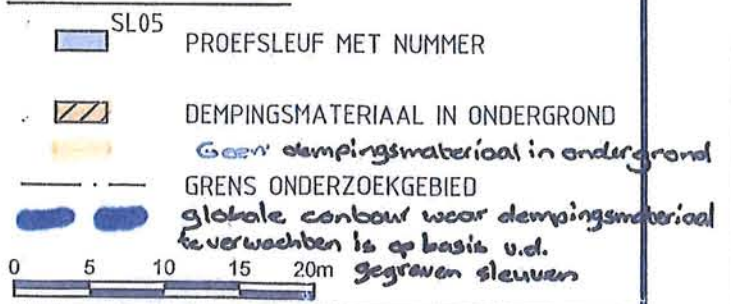 SL05
PROEFSLEUF MET NUMMER
DEMPINGSMATERIAAL IN ONDERGROND
Geen dempingsmateriaal in ondergrond
GRENS ONDERZOEKGEBIED
globale contour waar dempingsmateriaal
te verwachten is op basis v.d.
gegraven sleuven
0 5 10 15 20m